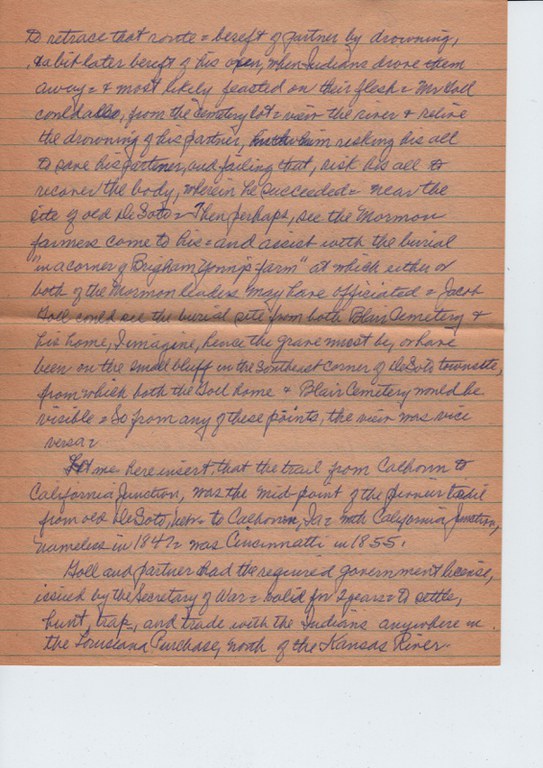 to retrace that route = bereft of partner by drowning,
& a bit later bereft of his oxen, when Indians drove them
away = & most likely feasted on their flesh = Mr Goll
could also, from the cemetery lot = view the river & relive
the drowning of his partner, him risking his all
to save his partner, and failing that, risk his all to
recover the body, wherein he succeeded = near the
site of old DeSoto = Then perhaps, see the Mormon
farmers come to his = and assist with the burial
"in a corner of Brigham Young's farm" at which either or
both of the Mormon leaders may have officiated = Jacob
Goll could see the burial site from both Blair Cemetery &
his home, I imagine, hence the grave must be, or have
been on the small bluff in the Southeast corner of DeSoto townsite,
from which both the Goll home & Blair Cemetery would be
visible = So from any of these points, the view was vice
versa =
Let me here insert, that the trail from Calhoun to
California Junction, was the mid-point of the pioneer trail
from old DeSoto, Nebr. to Calhoun, Ia = with California Junction,
nameless in 1847 = was Cincinnatti in 1855.
Goll and partner had the required government license,
issued by the Secretary of War = valid for 2 years = to settle,
hunt, trap, and trade with the Indians anywhere in
the Louisiana Purchase, north of the Kansas River.